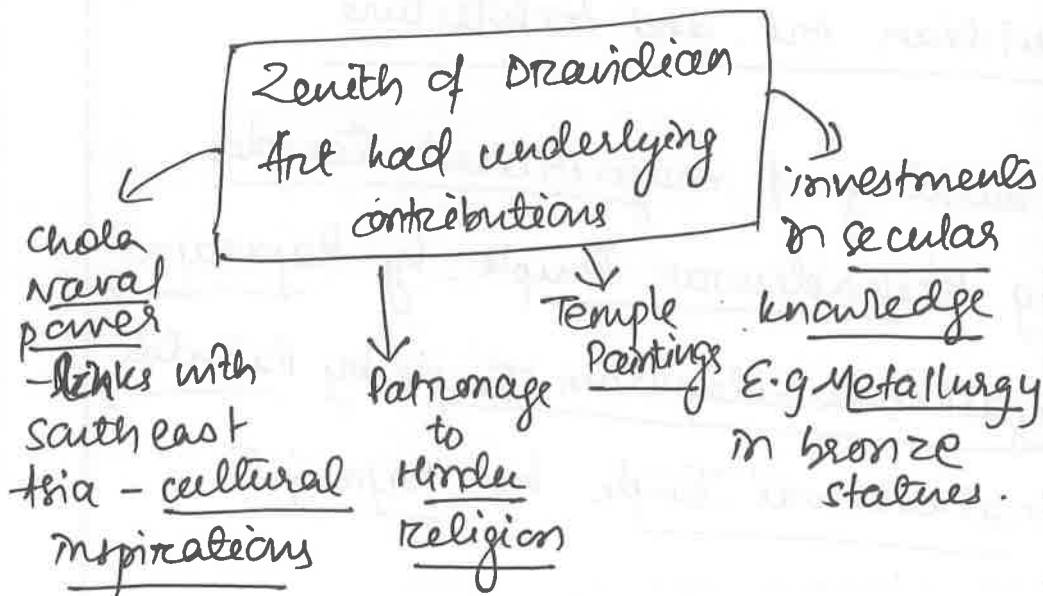 Zenith of Dravidian
Art had underlying
contributions
Chola
Naval
power
- Links with
south east
Asia - cultural
inspirations
Patronage
to
Hindu
religion
Temple
Paintings
investments
in secular
knowledge
E.g Metallurgy
in bronze
statues.